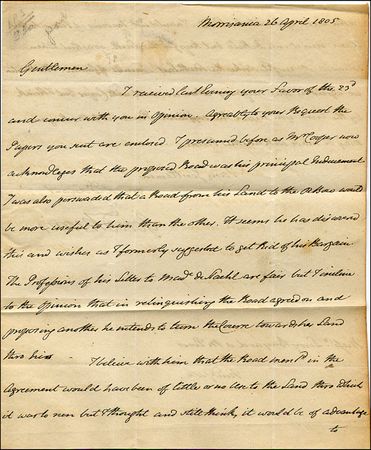 Morrisania 26 April 1805
Gentlemen
I received last Evening your Favor of the 23d
and concur with you in Opinion. Agreably to your Request the
Papers you sent are enclosed I presumed before as Mr Cooper now
acknowleges that the proposed Road was his principal Inducement
I was also perswaded that a Road from his Land to the would
be more useful to him than the other. It seems he has discovered
this and wishes as I formerly suggested to get Rid of his Bargain
The Professions of his Letter to de are fair but I incline
to the Opinion that in relinquishing the Road agreed on and
proposing another he intends to turn the Course towards his Land
thro his
I believe with him that the Road mend in the
Agreement would have been of little or no Use to the Land thro which
it was to run but I thought and still think, it would be of advantage
to